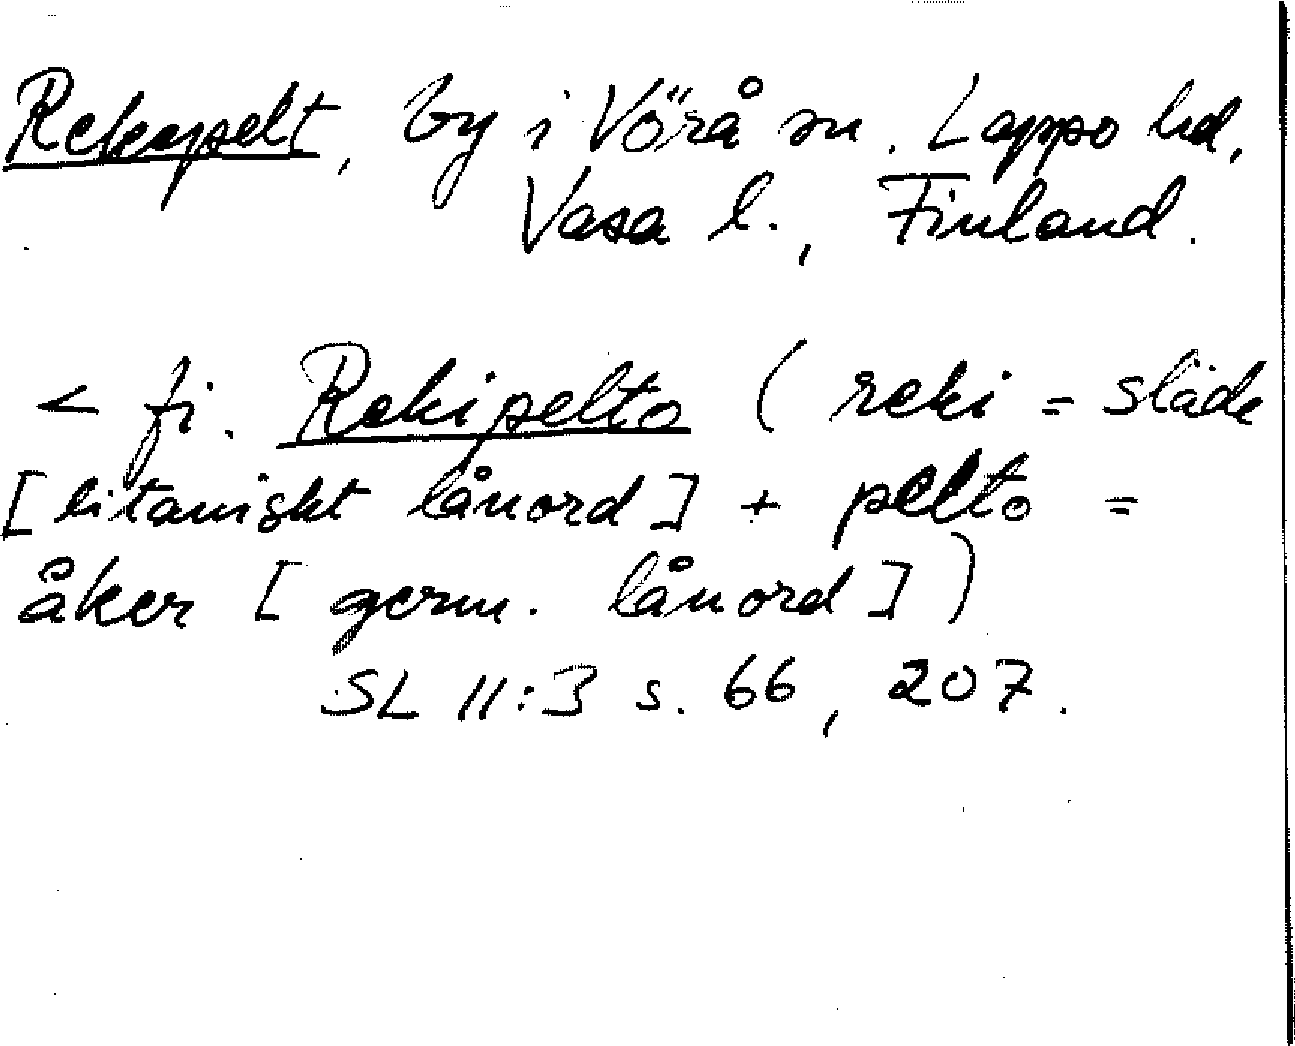 Rekepelt, by i Vörå sn. Lappo hd,
Vasa l., Finland.
< fi. Rekipelto (reki = släde
[litauiskt lånord] + pelto =
åker [germ. lånord])
SL 11:3 s. 66, 207.